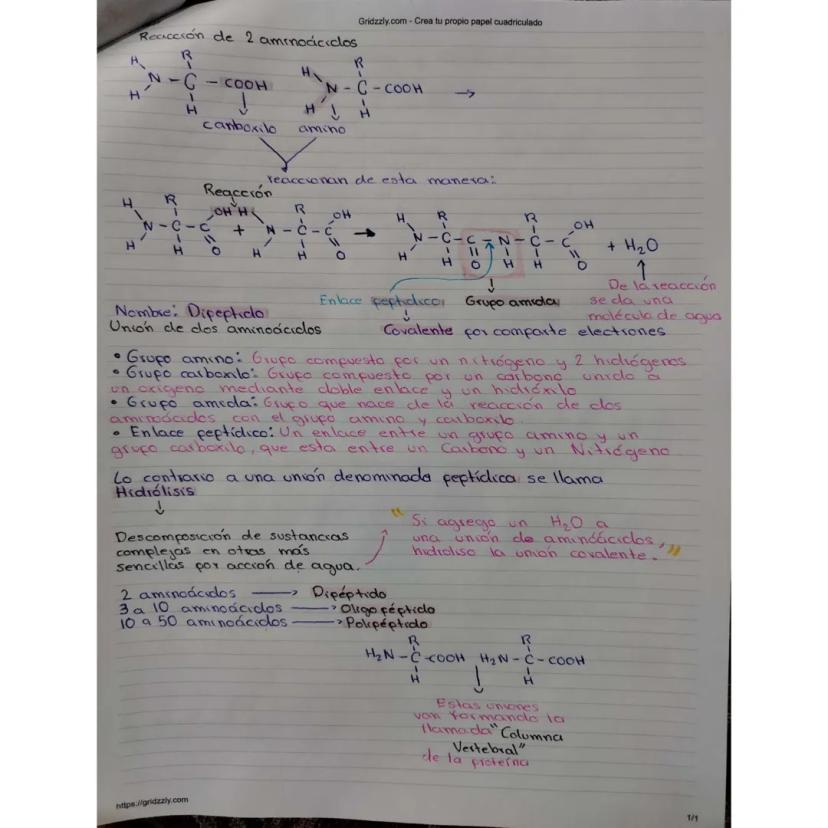 Gridzzly.com - Crea tu propio papel cuadriculado
Reacción de 2 aminoácidos
H R H R
N - C - COOH N - C - COOH →
H H H H
carboxilo amino
reaccionan de esta manera:
Reacción
H R OH H R OH H R R OH
N - C - C + N - C - C → N - C - C - N - C - C + H2O
H H O H H O H H O H H O
Enlace peptidico Grupo amida De la reacción
Nombre: Dipeptido se da una
Unión de dos aminoácidos Covalente por comparte electrones molécula de agua
• Grupo amino: Grupo compuesto por un nitrógeno y 2 hidrógenos
• Grupo carboxilo: Grupo compuesto por un carbono unido a
un oxigeno mediante doble enlace y un hidróxilo
• Grupo amida: Grupo que nace de la reacción de dos
aminoácidos con el grupo amino y carboxilo.
• Enlace peptídico: Un enlace entre un grupo amino y un
grupo carboxilo, que esta entre un Carbono y un Nitrógeno
Lo contrario a una unión denominada peptídica se llama
Hidrólisis
"Si agrego un H2O a
una unión de aminoácidos,
hidroliso la unión covalente."
Descomposición de sustancias
complejas en otras más
sencillas por acción de agua.
2 aminoácidos → Dipéptido
3 a 10 aminoácidos → Oligopéptido
10 a 50 aminoácidos → Polipéptido
R R
H2N - C - COOH H2N - C - COOH
H H
Estas uniones
van formando la
llamada "Columna
Vertebral"
de la proteína
https://gridzzly.com
1/1